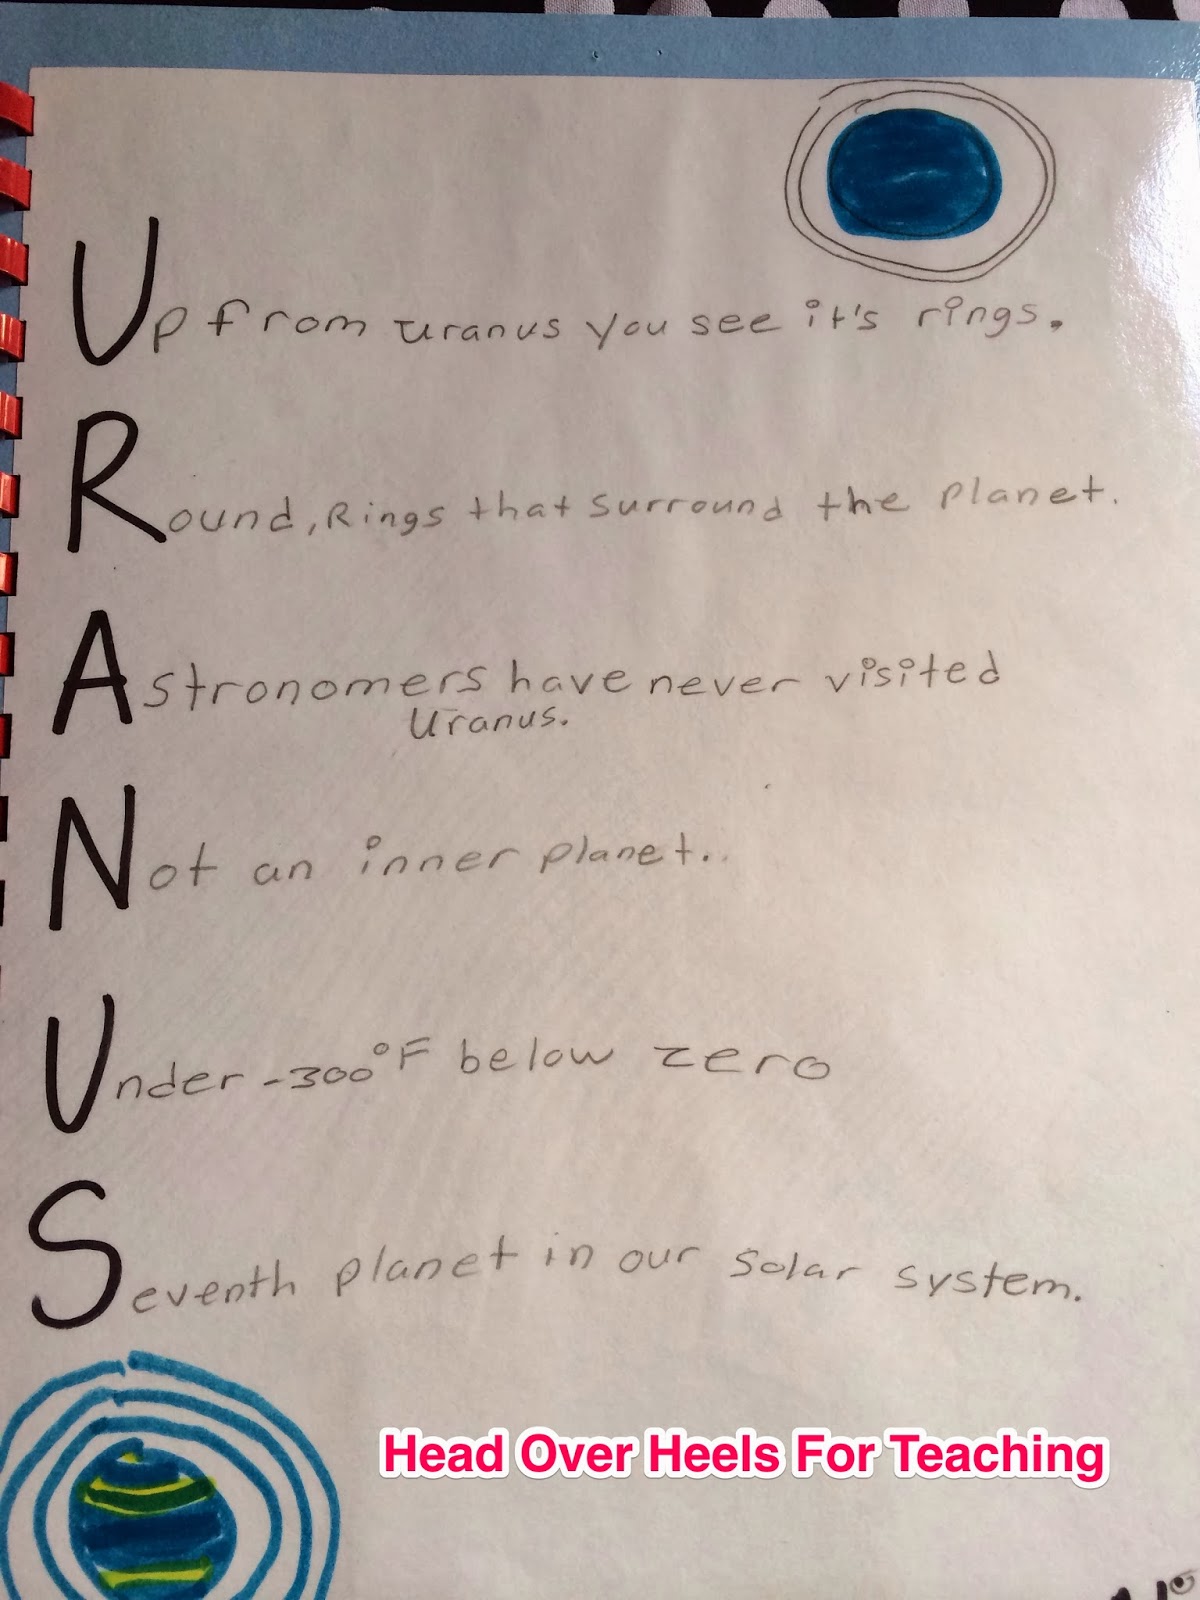 Up from Uranus you see it's rings.
Round, Rings that surround the planet.
Astronomers have never visited
Uranus.
Not an inner planet..
Under -300°F below zero
Seventh planet in our solar system.
Head Over Heels For Teaching